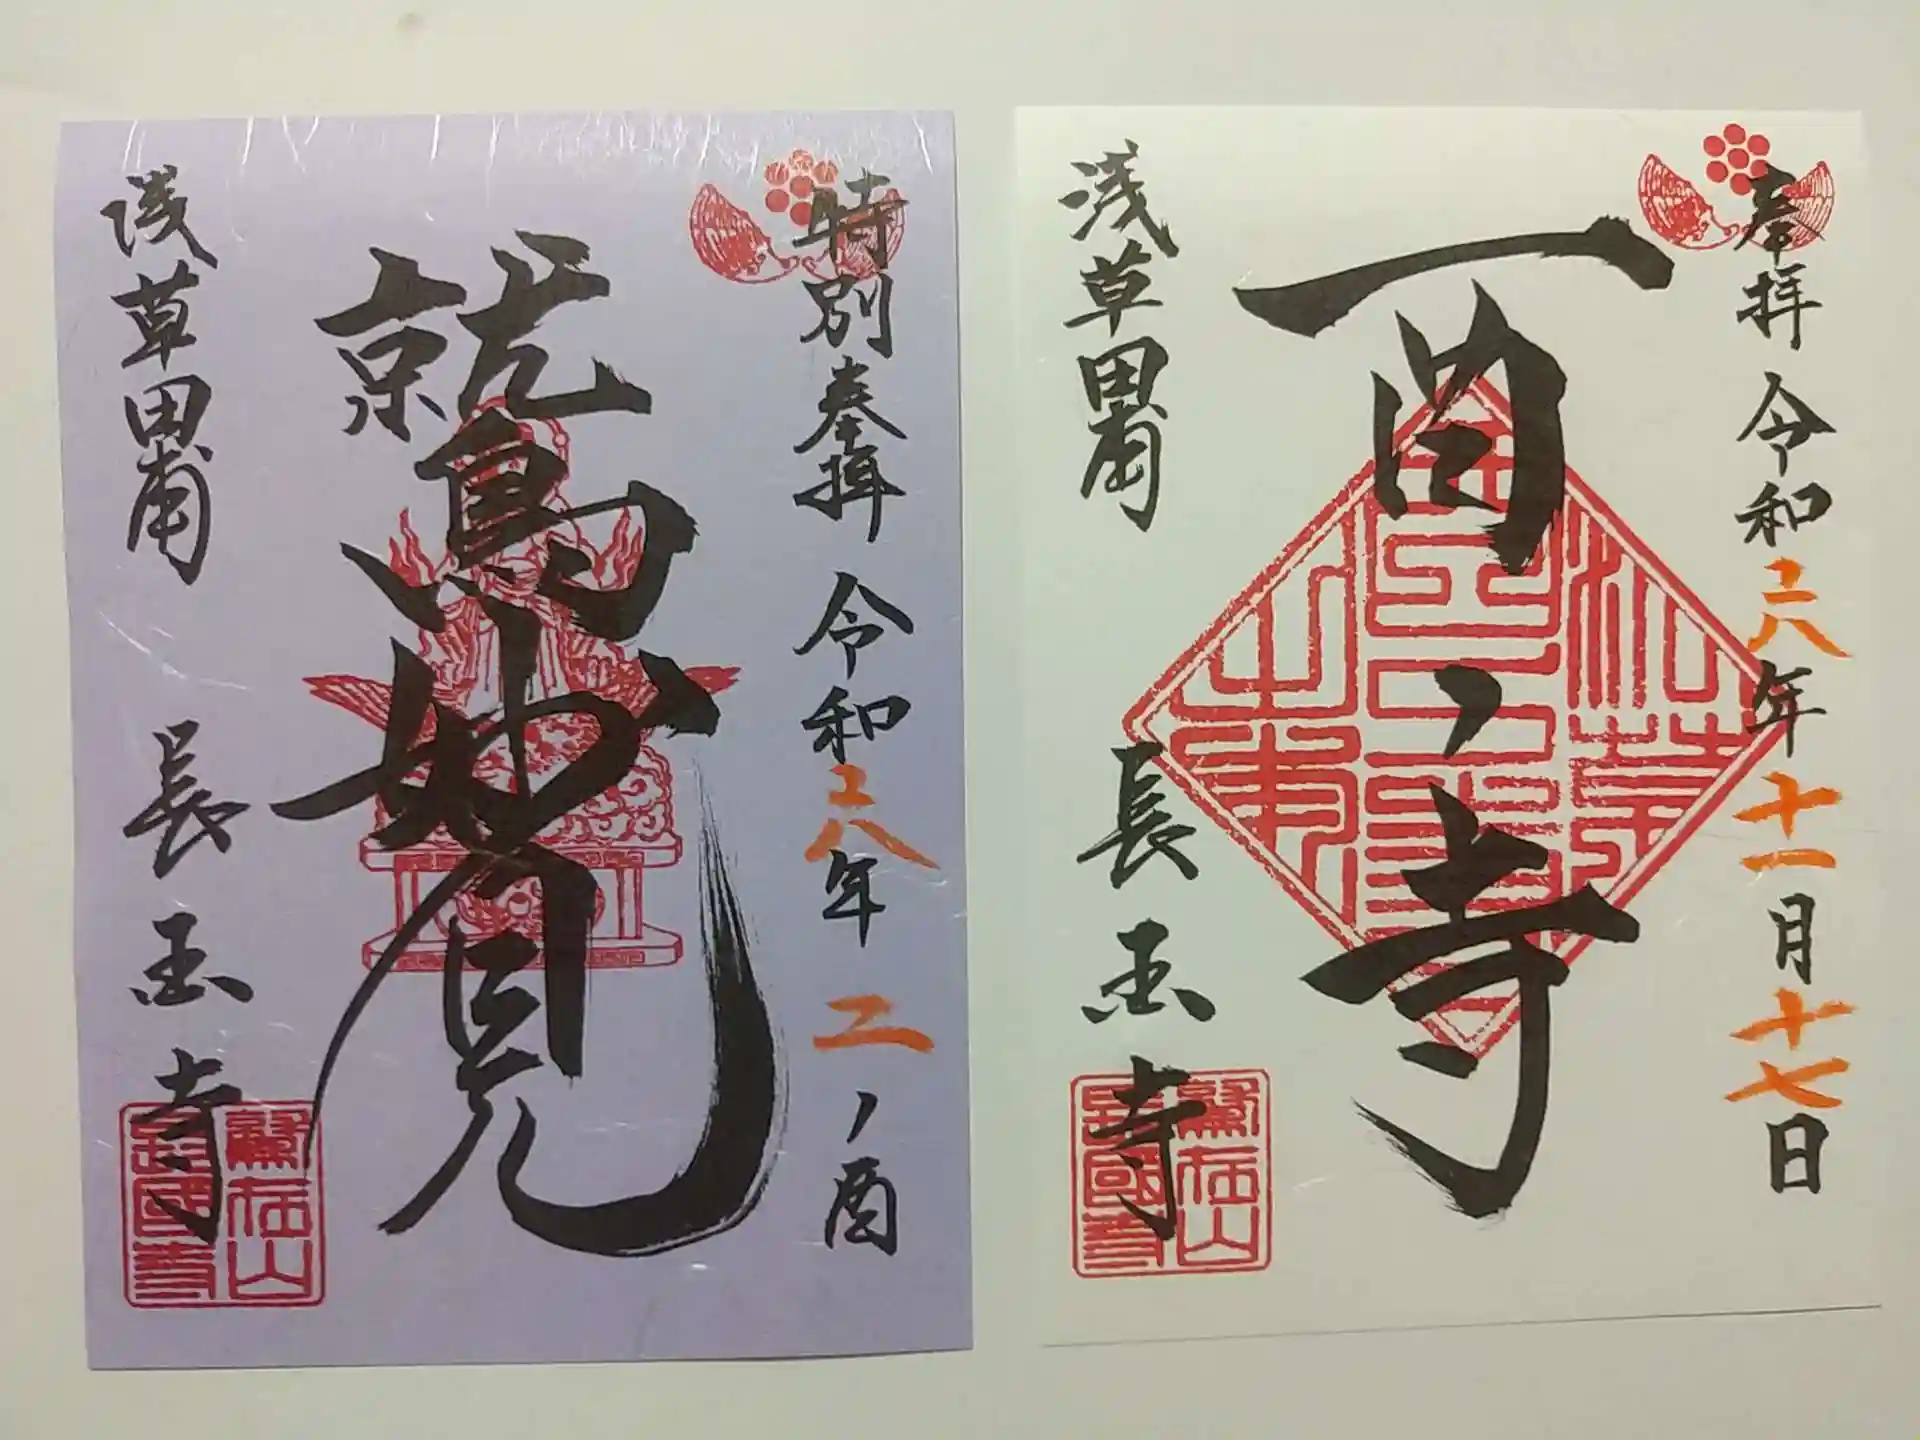 特別奉拝 令和六年 二ノ酉
鷲妙見
浅草田甫 長国寺
鷲在山
長國寺
奉拝 令和六年十一月十七日
酉ノ寺
浅草田甫 長国寺
鷲在山
長國寺